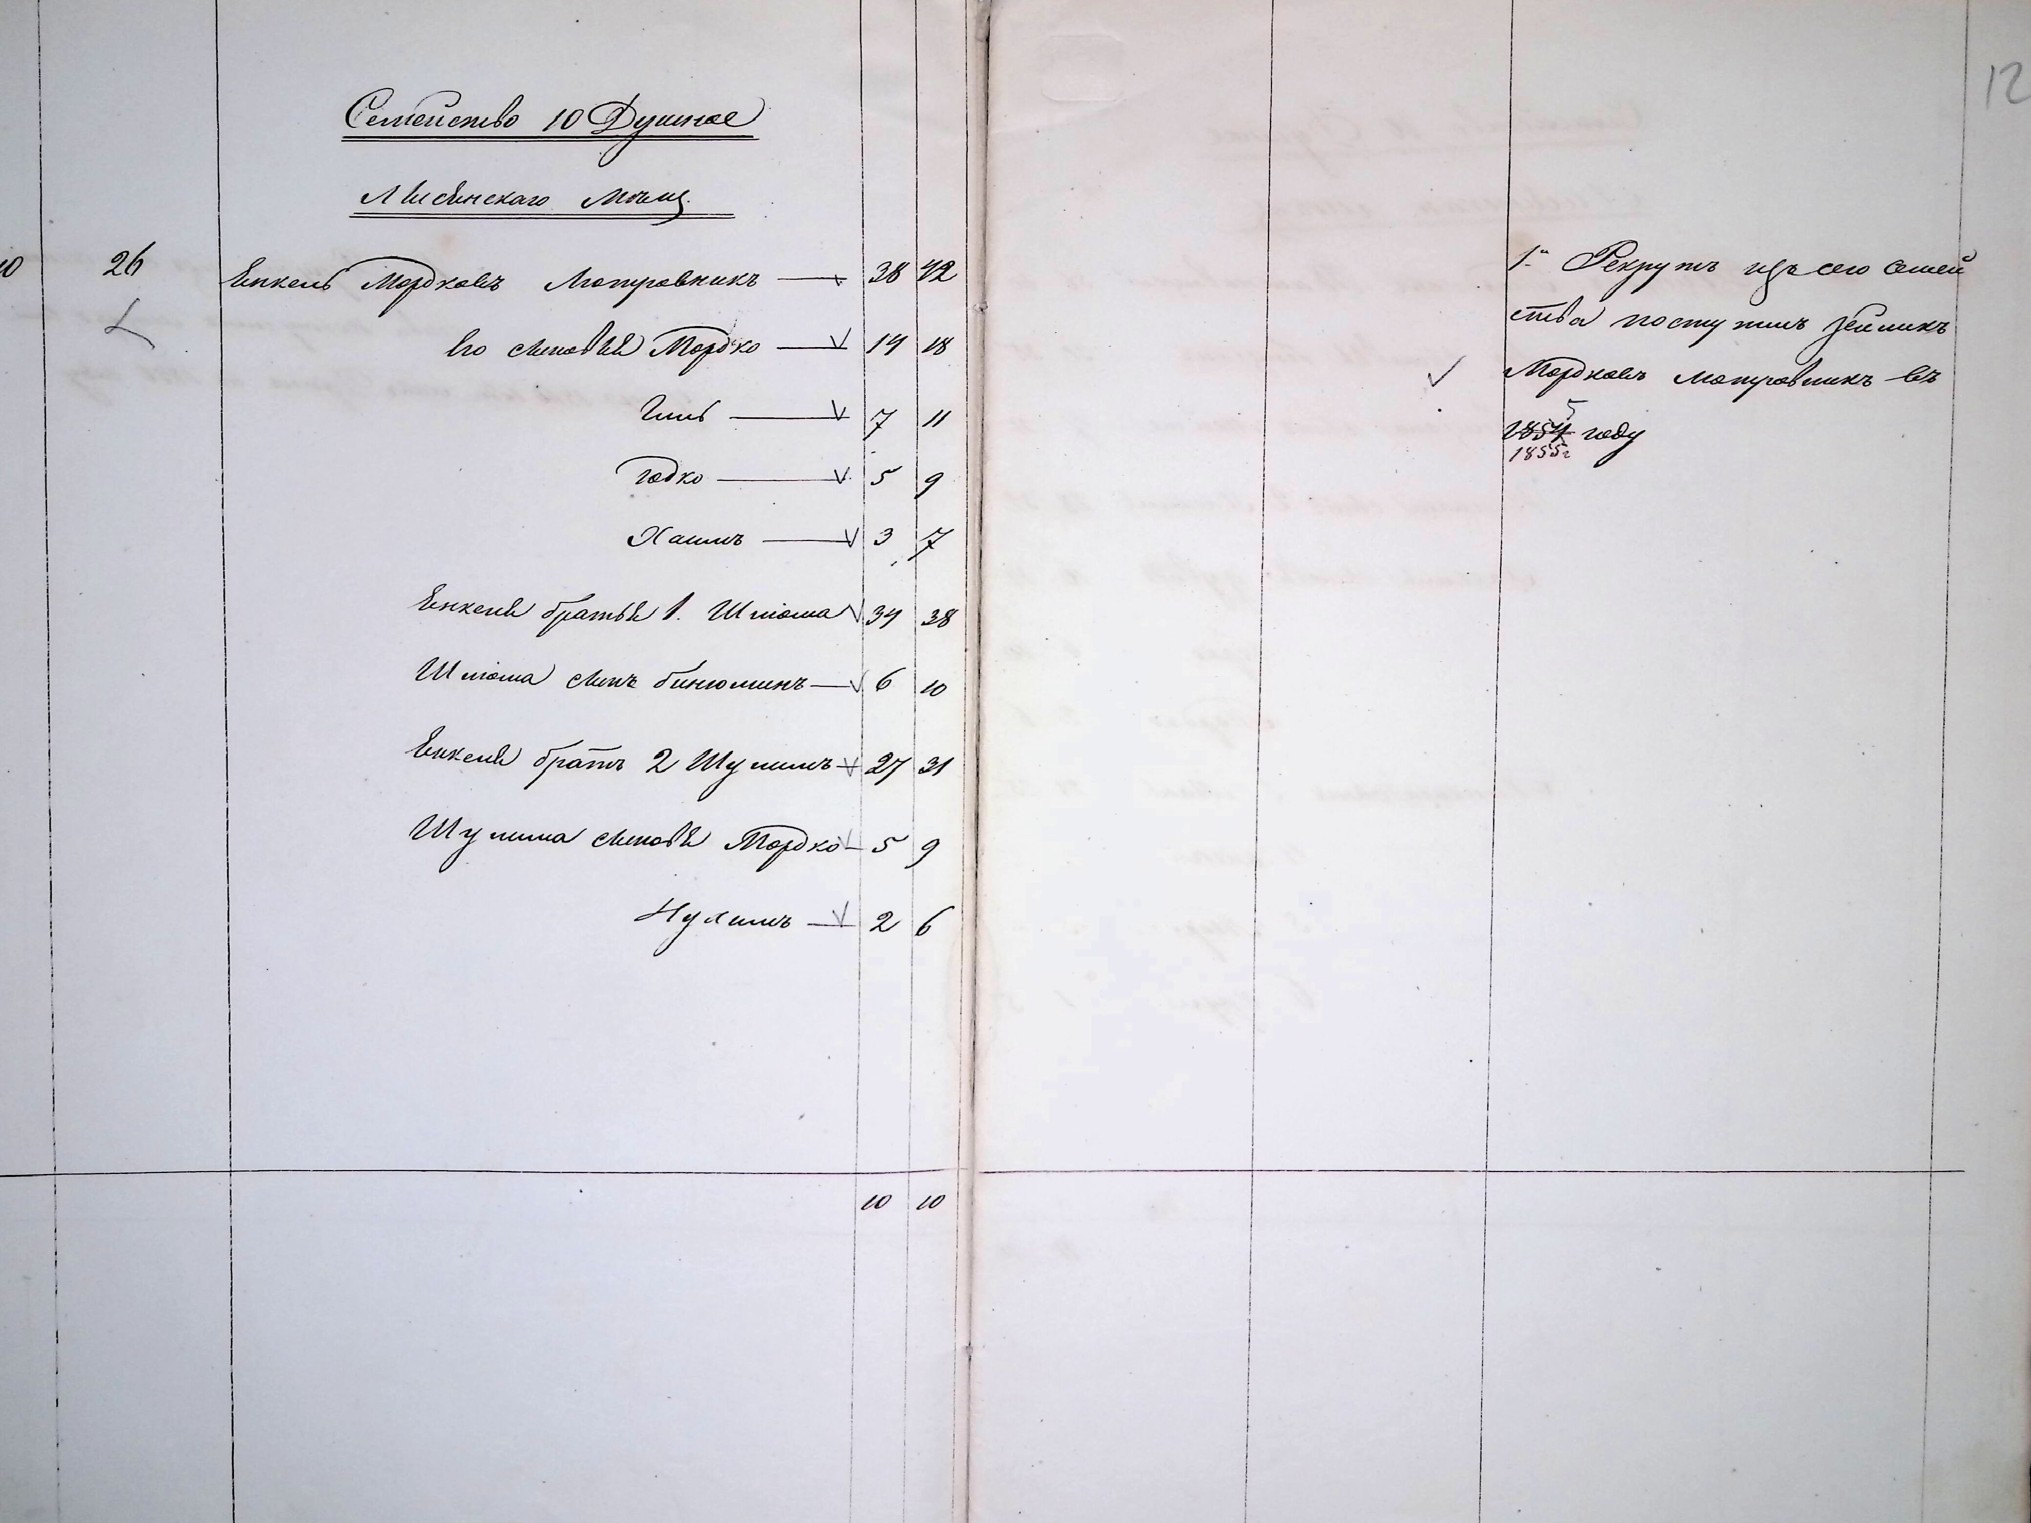 12
Семейство 10 Душное
Лисянскаго Мѣщ.
10 26 Енкель Мордковъ Мотровникъ 38 42
Его сыновья Мордко 14 18
Гиль 7 11
Годко 5 9
Хаимъ 3 7
Енкеля братья 1. Шлома 34 38
Шлома сынъ Бинюминъ 6 10
Енкеля братъ 2 Шулимъ 27 31
Шулима сыновья Мордко 5 9
Нухимъ 2 6
10 10
1й Рекрутъ изъ сего семей
ства поступилъ Зейликъ
Мордковъ Мотровникъ въ
5
1854 году
1855 г